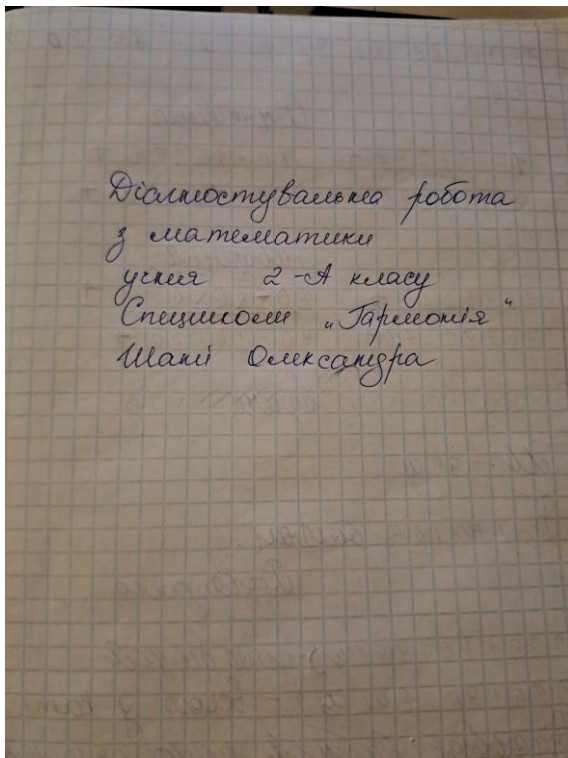 Діагностувальна робота
з математики
учня 2-А класу
Спецшколи „Гармонія"
Шапі Олександра